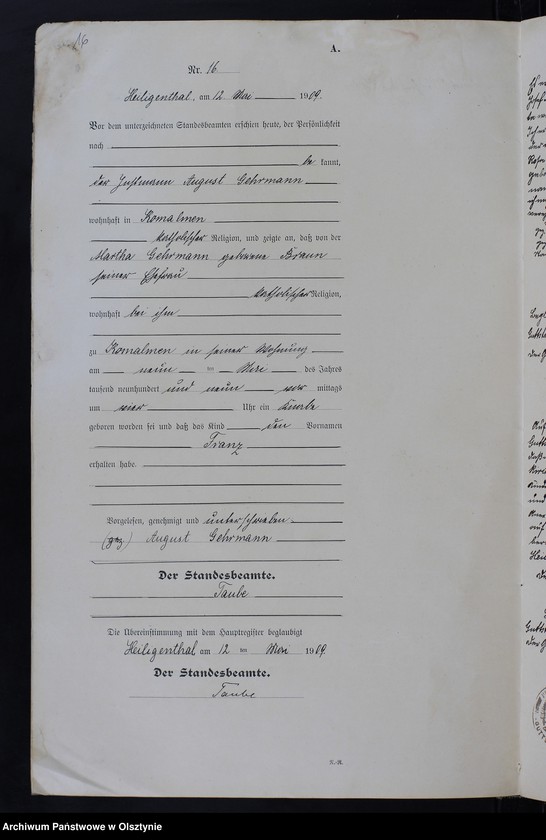 16
A.
Nr. 16
Heiligenthal, am 12 Mai 1909.
Vor dem unterzeichneten Standesbeamten erschien heute, der Persönlichkeit
nach
be kannt,
der Instmann August Gehrmann
wohnhaft in Komalmen
katholischer Religion, und zeigte an, daß von der
Martha Gehrmann geborene Braun
seiner Ehefrau
katholischer Religion,
wohnhaft bei ihm
zu Komalmen in seiner Wohnung
am neun ten Mai des Jahres
tausend neunhundert und neun vor mittags
um vier Uhr ein Knabe
geboren worden sei und daß das Kind den Vornamen
Franz
erhalten habe.
Vorgelesen, genehmigt und unterschrieben
(gez) August Gehrmann
Der Standesbeamte.
Taube
Die Übereinstimmung mit dem Hauptregister beglaubigt
Heiligenthal am 12 ten Mai 1909
Der Standesbeamte.
Taube
Archiwum Państwowe w Olsztynie